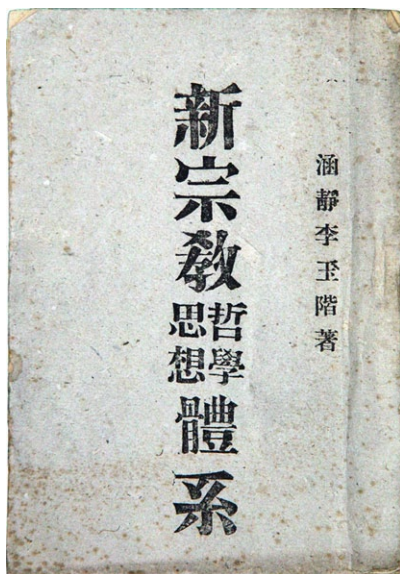 涵靜李玉階著
新宗教哲學思想體系